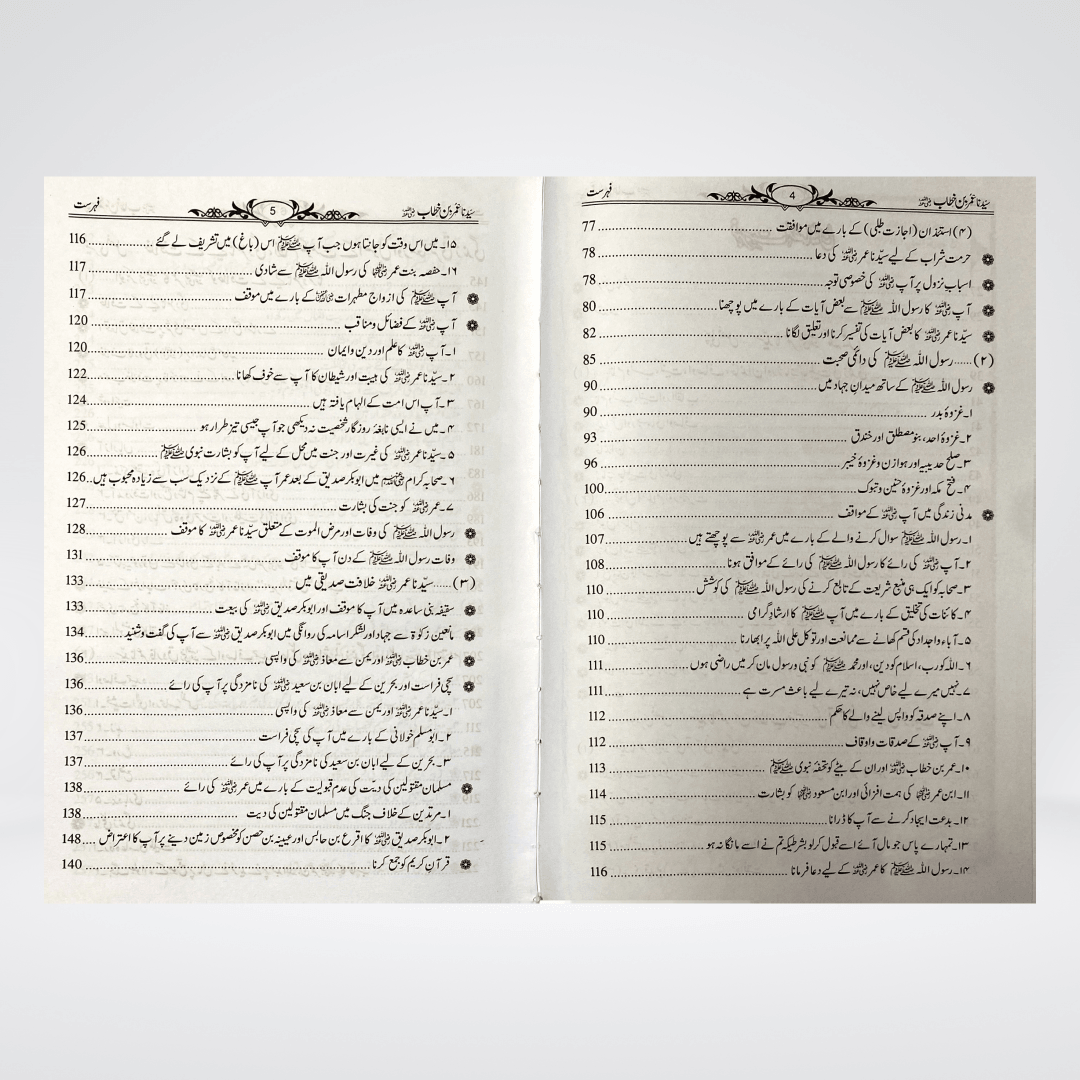 سیدنا عمر بن خطاب رضی اللہ عنہ 4 فہرست
(۴) استئذان (اجازت طلبی) کے بارے میں موافقت ........ 77
حرمت شراب کے لیے سیّدنا عمر رضی اللہ عنہ کی دعا ........ 78
اسباب نزول پر آپ رضی اللہ عنہ کی خصوصی توجہ ........ 78
آپ رضی اللہ عنہ کا رسول اللہ ﷺ سے بعض آیات کے بارے میں پوچھنا ........ 80
سیّدنا عمر رضی اللہ عنہ کا بعض آیات کی تفسیر کرنا اور تعلیق لگانا ........ 82
(۲) ..... رسول اللہ ﷺ کی دائمی صحبت ........ 85
رسول اللہ ﷺ کے ساتھ میدانِ جہاد میں ........ 90
۱۔ غزوۂ بدر ........ 90
۲۔ غزوۂ احد، بنو مصطلق اور خندق ........ 93
۳۔ صلح حدیبیہ اور ہوازن و غزوۂ خیبر ........ 96
۴۔ فتح مکہ اور غزوۂ حنین و تبوک ........ 100
مدنی زندگی میں آپ رضی اللہ عنہ کے مواقف ........ 106
۱۔ رسول اللہ ﷺ سوال کرنے والے کے بارے میں عمر رضی اللہ عنہ سے پوچھتے ہیں ........ 107
۲۔ آپ رضی اللہ عنہ کی رائے کا رسول اللہ ﷺ کی رائے کے موافق ہونا ........ 108
۳۔ صحابہ کو ایک ہی منبع شریعت کے تابع کرنے کی رسول اللہ ﷺ کی کوشش ........ 110
۴۔ کائنات کی تخلیق کے بارے میں آپ ﷺ کا ارشادِ گرامی ........ 110
۵۔ آباء و اجداد کی قسم کھانے سے ممانعت اور توکل علی اللہ پر ابھارنا ........ 110
۶۔ اللہ کو رب، اسلام کو دین، اور محمد ﷺ کو نبی و رسول مان کر میں راضی ہوں ........ 111
۷۔ نہیں میرے لیے خاص نہیں، نہ تیرے لیے باعث مسرت ہے ........ 111
۸۔ اپنے صدقہ کو واپس لینے والے کا حکم ........ 112
۹۔ آپ رضی اللہ عنہ کے صدقات و اوقاف ........ 112
۱۰۔ عمر بن خطاب رضی اللہ عنہ اور ان کے بیٹے کو تحفۂ نبوی ﷺ ........ 113
۱۱۔ ابن عمر رضی اللہ عنہما کی ہمت افزائی اور ابن مسعود رضی اللہ عنہ کو بشارت ........ 114
۱۲۔ بدعت ایجاد کرنے سے آپ کا ڈرانا ........ 115
۱۳۔ تمہارے پاس جو مال آئے اسے قبول کرلو بشرطیکہ تم نے اسے مانگا نہ ہو ........ 115
۱۴۔ رسول اللہ ﷺ کا عمر رضی اللہ عنہ کے لیے دعا فرمانا ........ 116
سیّدنا عمر بن خطاب رضی اللہ عنہ 5 فہرست
۱۵۔ میں اس وقت کو جانتا ہوں جب آپ ﷺ اس (باغ) میں تشریف لے گئے ........ 116
۱۶۔ حفصہ بنت عمر رضی اللہ عنہا کی رسول اللہ ﷺ سے شادی ........ 117
آپ ﷺ کی ازواج مطہرات رضی اللہ عنہن کے بارے میں موقف ........ 117
آپ رضی اللہ عنہ کے فضائل و مناقب ........ 120
۱۔ آپ رضی اللہ عنہ کا علم اور دین و ایمان ........ 120
۲۔ سیّدنا عمر رضی اللہ عنہ کی ہیبت اور شیطان کا آپ سے خوف کھانا ........ 122
۳۔ آپ اس امت کے الہام یافتہ ہیں ........ 124
۴۔ میں نے ایسی نابغۂ روزگار شخصیت نہ دیکھی جو آپ جیسی تیز طرار ہو ........ 125
۵۔ سیّدنا عمر رضی اللہ عنہ کی غیرت اور جنت میں محل کے لیے آپ کو بشارت نبوی ﷺ ........ 126
۶۔ صحابہ کرام رضی اللہ عنہم میں ابوبکر صدیق کے بعد عمر آپ ﷺ کے نزدیک سب سے زیادہ محبوب ہیں .. 126
۷۔ عمر رضی اللہ عنہ کو جنت کی بشارت ........ 127
رسول اللہ ﷺ کی وفات اور مرض الموت کے متعلق سیّدنا عمر رضی اللہ عنہ کا موقف ........ 128
وفات رسول اللہ ﷺ کے دن آپ کا موقف ........ 131
(۳) ..... سیّدنا عمر رضی اللہ عنہ خلافت صدیقی میں ........ 133
سقیفہ بنی ساعدہ میں آپ کا موقف اور ابوبکر صدیق رضی اللہ عنہ کی بیعت ........ 133
مانعین زکوٰۃ سے جہاد اور لشکر اسامہ کی روانگی میں ابوبکر صدیق رضی اللہ عنہ سے آپ کی گفت و شنید ........ 134
عمر بن خطاب رضی اللہ عنہ اور یمن سے معاذ رضی اللہ عنہ کی واپسی ........ 136
سچی فراست اور بحرین کے لیے ابان بن سعید رضی اللہ عنہ کی نامزدگی پر آپ کی رائے ........ 136
۱۔ سیّدنا عمر رضی اللہ عنہ اور یمن سے معاذ رضی اللہ عنہ کی واپسی ........ 136
۲۔ ابو مسلم خولانی کے بارے میں آپ کی سچی فراست ........ 137
۳۔ بحرین کے لیے ابان بن سعید کی نامزدگی پر آپ کی رائے ........ 137
مسلمان مقتولین کی دیت کی عدم قبولیت کے بارے میں عمر رضی اللہ عنہ کی رائے ........ 138
۱۔ مرتدین کے خلاف جنگ میں مسلمان مقتولین کی دیت ........ 138
۲۔ ابوبکر صدیق رضی اللہ عنہ کا اقرع بن حابس اور عیینہ بن حصن کو مخصوص زمین دینے پر آپ کا اعتراض .... 148
قرآنِ کریم کو جمع کرنا ........ 140